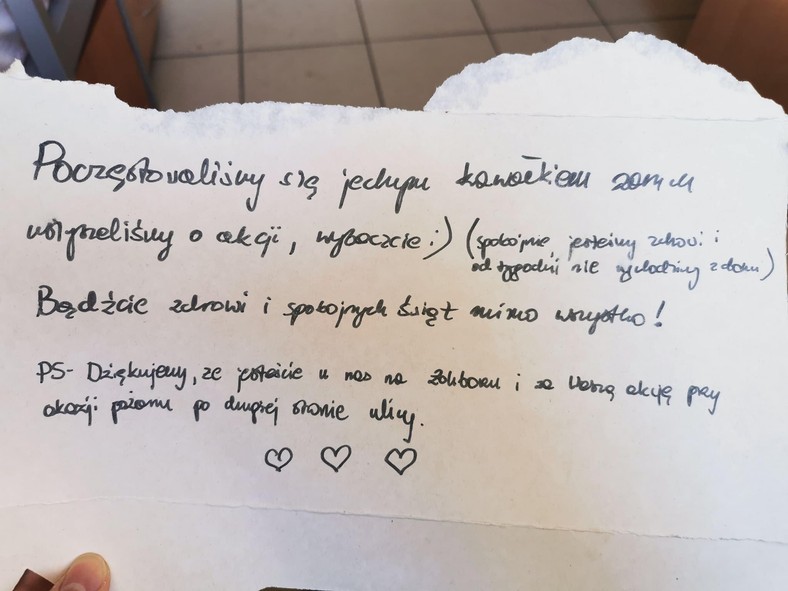 Poczęstowaliśmy się jednym kawałkiem zanim
usłyszeliśmy o akcji, wybaczcie ;) (spokojnie, jesteśmy zdrowi i
od tygodni nie wychodzimy z domu)
Bądźcie zdrowi i spokojnych świąt mimo wszystko!
PS- Dziękujemy, że jesteście u nas na Żoliborzu i za Waszą akcję przy
okazji pożaru po drugiej stronie ulicy.